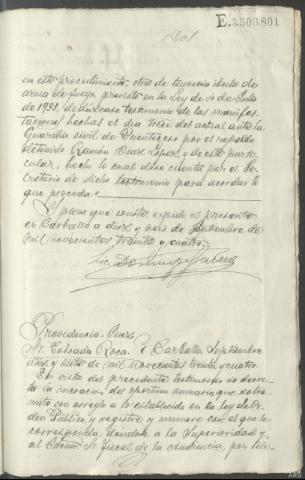 E.3.500.801
Dos
en este procedimiento; otra de tenencia ilicita de
arma de fuego previsto en la Ley de 4 de Julio
de 1933, dedúzcase testimonio de las manifes-
taciones hechas el dia trece del actual ante la
Guardia civil de por el repetido
detenido Ramón Dias López, y de este parti-
cular; hecho lo cual dése cuenta por el Se-
cretario de dicho testimonio para acordar lo
que proceda.
Y para que conste expido el presente
en Carballo a diez y seis de Septiembre de
mil novecientos treinta y cuatro.
Lic. Domingo
Providencia-Juez
Sr. Taboada Roca. Carballo Septiembre
diez y siete de mil novecientos treinta y cuatro.
En vista del precedente testimonio se decre-
ta la incoacion del oportuno sumario que se tra-
mite con arreglo a lo establecido en la ley de Or-
den Público, y registre y numere con el que le
corresponda, dándole a la Superioridad y
al Sr. Fiscal de la Audiencia, por tele-